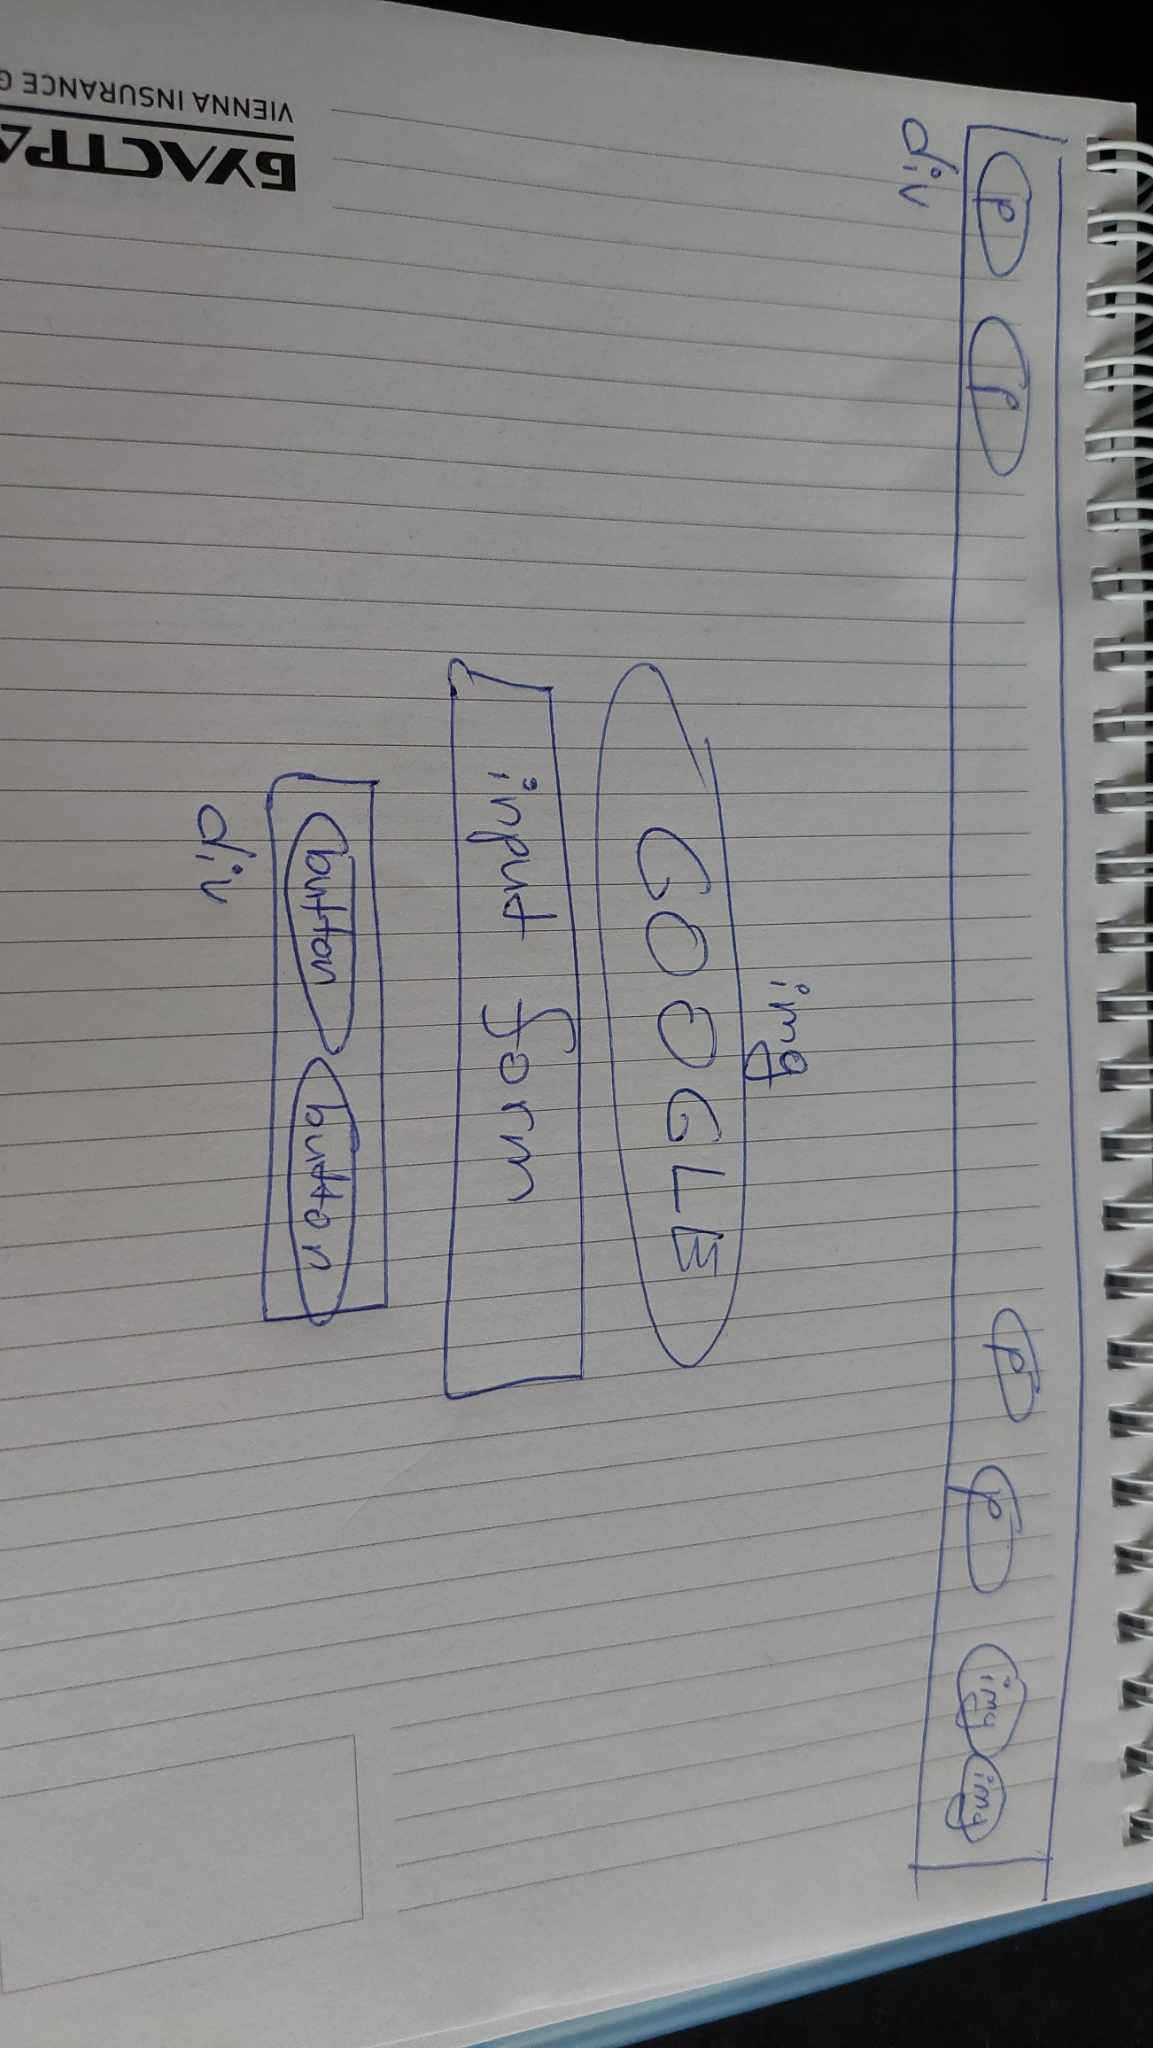 p p p p img img
div
img
GOOGLE
input form
button button
div
БУЛСТРА
VIENNA INSURANCE G